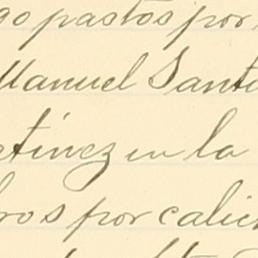 go pastos por
Manuel Santi
tinez en la
ros por calich